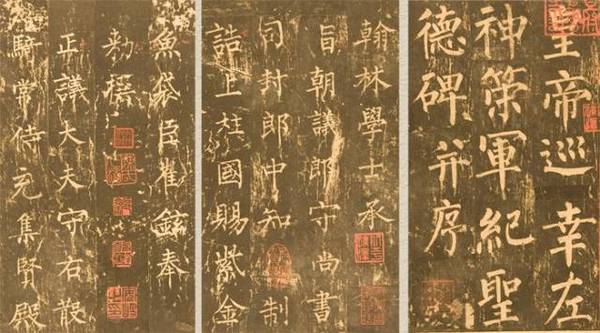 皇帝巡幸左
神策軍紀聖
德碑并序
翰林學士承
旨朝議郎守尚書
司封郎中知制
誥上柱國賜紫金
魚袋臣崔鉉奉
敕撰
正議大夫守右散
騎常侍充集賢殿